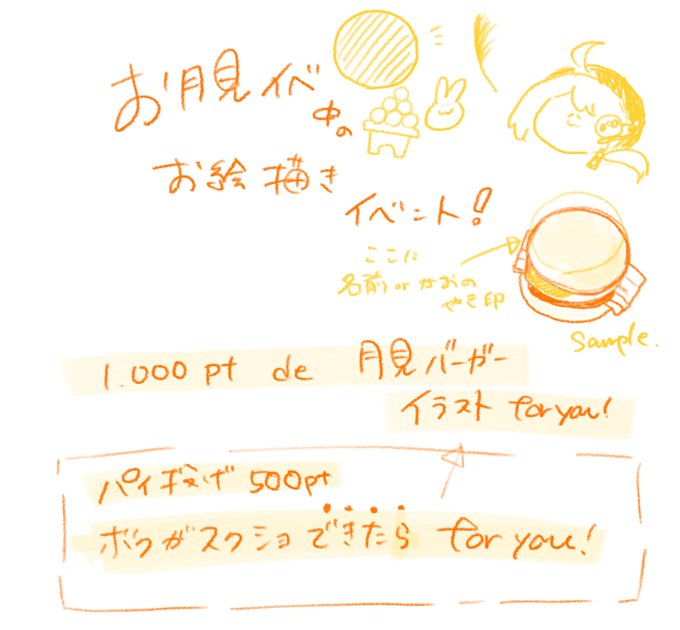 お月見イベ中の
お絵描き
イベント!
ここに
名前or かおの
やき印
Sample.
1.000 pt de 月見バーガー
イラスト for you!
パイ投げ 500pt
ボクがスクショできたら for you!